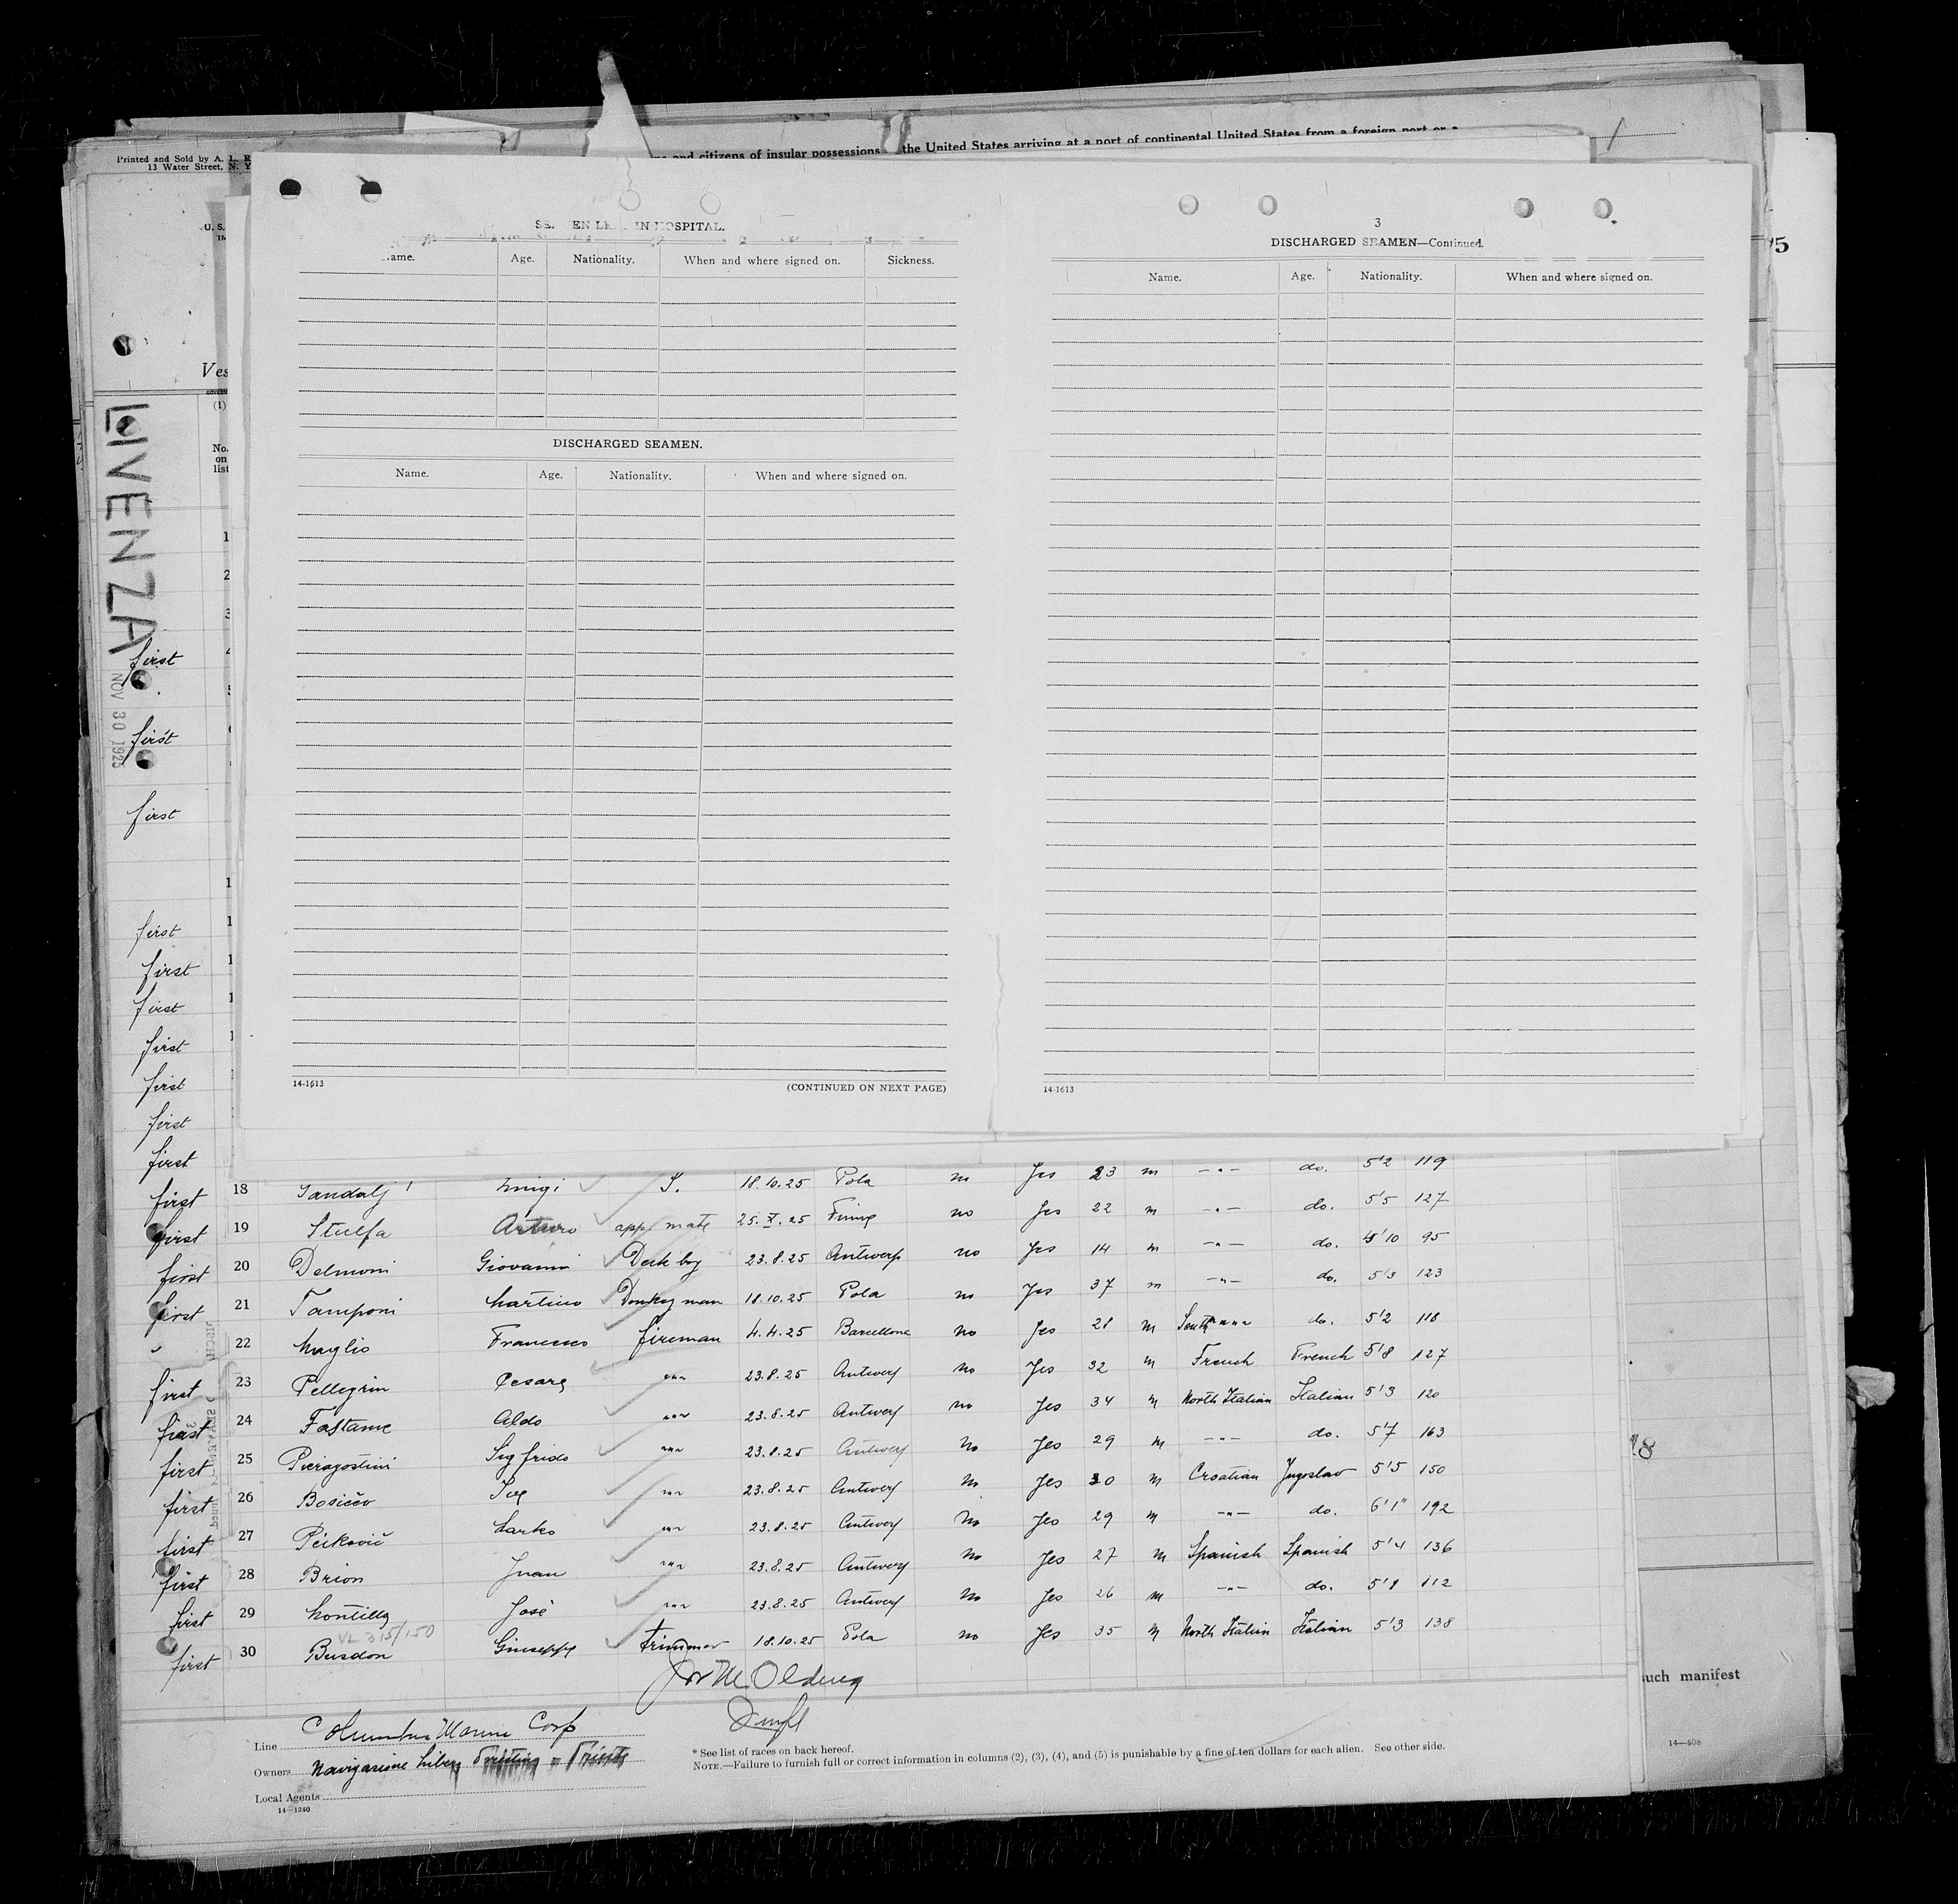 Printed and Sold by A. L. R
13 Water Street, N. Y
and citizens of insular possessions the United States arriving at a port of continental United States from a foreign port or a
U. S.
Ves
(1)
No.
on
list
LIVENZA
NOV 30 1925
SEA EN LE IN HOSPITAL.
ame. Age. Nationality. When and where signed on. Sickness.
DISCHARGED SEAMEN.
Name. Age. Nationality. When and where signed on.
14-1613 (CONTINUED ON NEXT PAGE)
3
DISCHARGED SEAMEN—Continued.
Name. Age. Nationality. When and where signed on.
14-1613
first
first
first
first
first
first
first
first
first
first
do. 5'2 119
first 18 Luigi 18.10.25 Pola no Yes 23 m -"- do. 5'5 127
first 19 Stulfa Arturo app. mate 25.X.25 Fiume no Yes 22 m -"- do. 4'10 95
first 20 Delmoni Giovanni Deck boy 23.8.25 Antwerp no Yes 14 m -"- do. 5'3 123
first 21 Tamponi Martino Donkey man 18.10.25 Pola no Yes 37 m -"-
" 22 Maglio Francesco fireman 4.4.25 Barcellona no Yes 28 m South """ do. 5'2 118
first 23 Pellegrin Cesare """ 23.8.25 Antwerp no Yes 32 m French French 5'8 127
first 24 Aldo """ 23.8.25 Antwerp no Yes 34 m North Italian Italian 5'3 120
first 25 Pieragostini Sigfrido """ 23.8.25 Antwerp No Yes 29 m -"- do. 5'7 163
first 26 Bosicco Ive """ 23.8.25 Antwerp No Yes 30 m Croatian Jugoslav 5'5 150
first 27 Zarko """ 23.8.25 Antwerp No Yes 29 m -"- do. 6'1" 192
first 28 Brion Juan """ 23.8.25 Antwerp No Yes 27 m Spanish Spanish 5'4 136
first 29 Montilla José """ 23.8.25 Antwerp No Yes 26 m -"- do. 112
VL 315/150
first 30 Busdon Giuseppe trimmer 18.10.25 Pola no Yes 35 m North Italian Italian 5'3 138
Line Columbus Marine Corp
Owners Navigazione Libera Triestina = Trieste
Local Agents
14—1240
* See list of races on back hereof.
NOTE.—Failure to furnish full or correct information in columns (2), (3), (4), and (5) is punishable by a fine of ten dollars for each alien. See other side.
such manifest
14—508